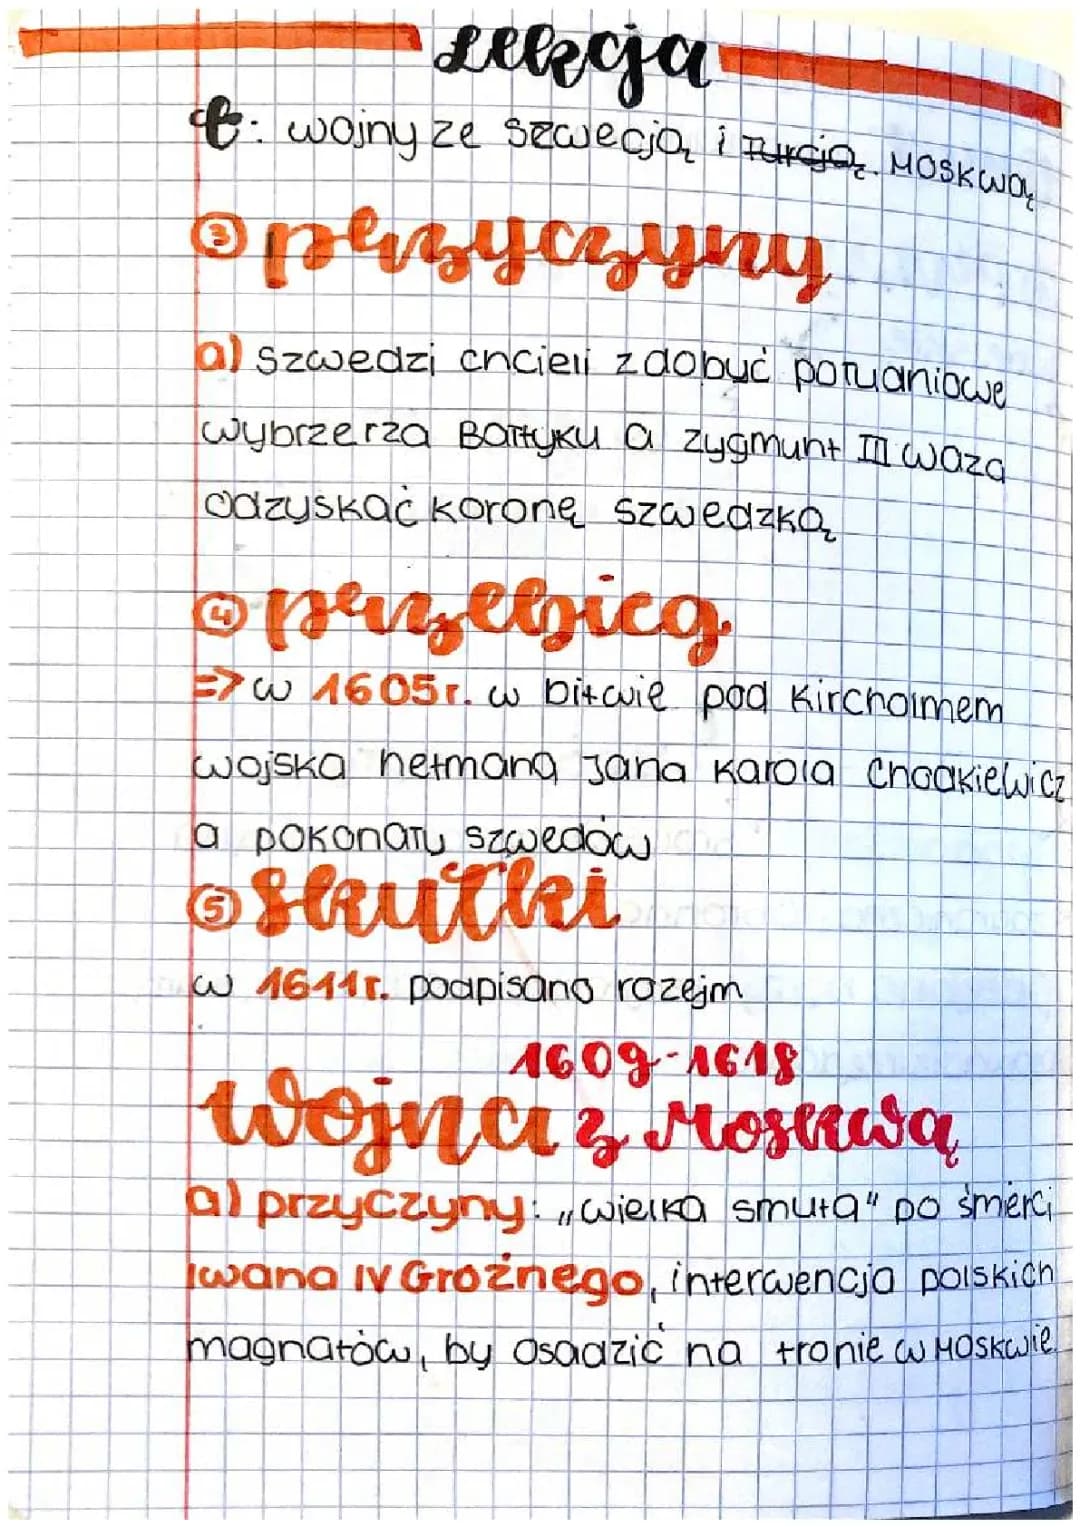 Lekcja
t: wojny ze szwecją i Turcją. MOSKWĄ
③ przyczyny
a) Szwedzi chcieli zdobyć południowe
wybrzerza Bałtyku a zygmunt III waza
odzyskać koronę szwedzką
④ przebieg
=> w 1605r. w bitwie pod Kircholmem
wojska hetmana Jana Karola Chodkiewicz
a pokonały szwedów
⑤ Skutki
w 1611r. podpisano rozejm
1609-1618
Wojna z Moskwą
a) przyczyny: „wielka smuta" po śmierci
Iwana IV Groźnego, interwencja polskich
magnatów, by osadzić na tronie w Moskwie